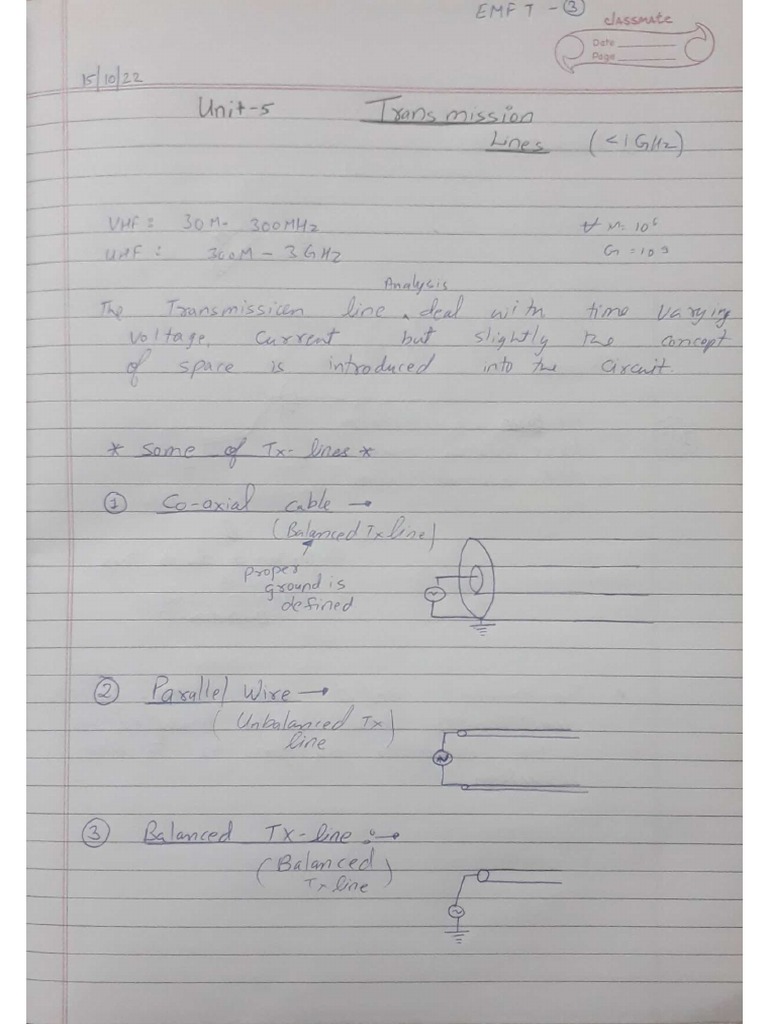 EMFT - ③
classmate
Date
Page
15/10/22
Unit-5 Transmission
Lines (<1GHz)
VHF: 30M- 300MHz M= 10⁶
UHF: 300M - 3GHz G = 10⁹
Analysis
The Transmissicen line ^ deal with time varying
voltage, current but slightly the concept
of space is introduced into the circuit.
* Some of Tx- lines *
① Co-axial cable →
(Balanced Tx line)
proper
ground is
defined
② Parallel Wire →
(Unbalanced Tx
line)
③ Balanced TX-line :→
(Balanced
Tx line)